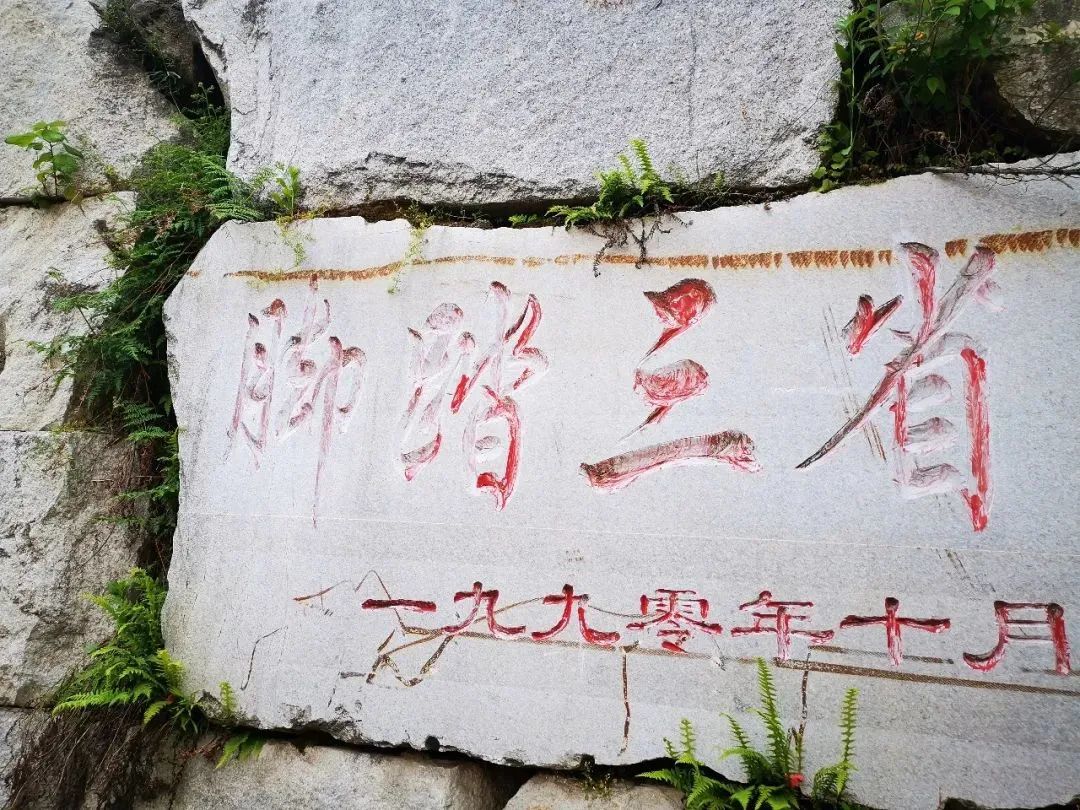 脚踏三省
一九九零年十月